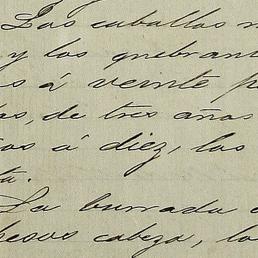 Los caballos m
y los quebrant
s á veinte p
as, de tres años
os á diez, las
ta.
La burrada
pesos cabeza, lo